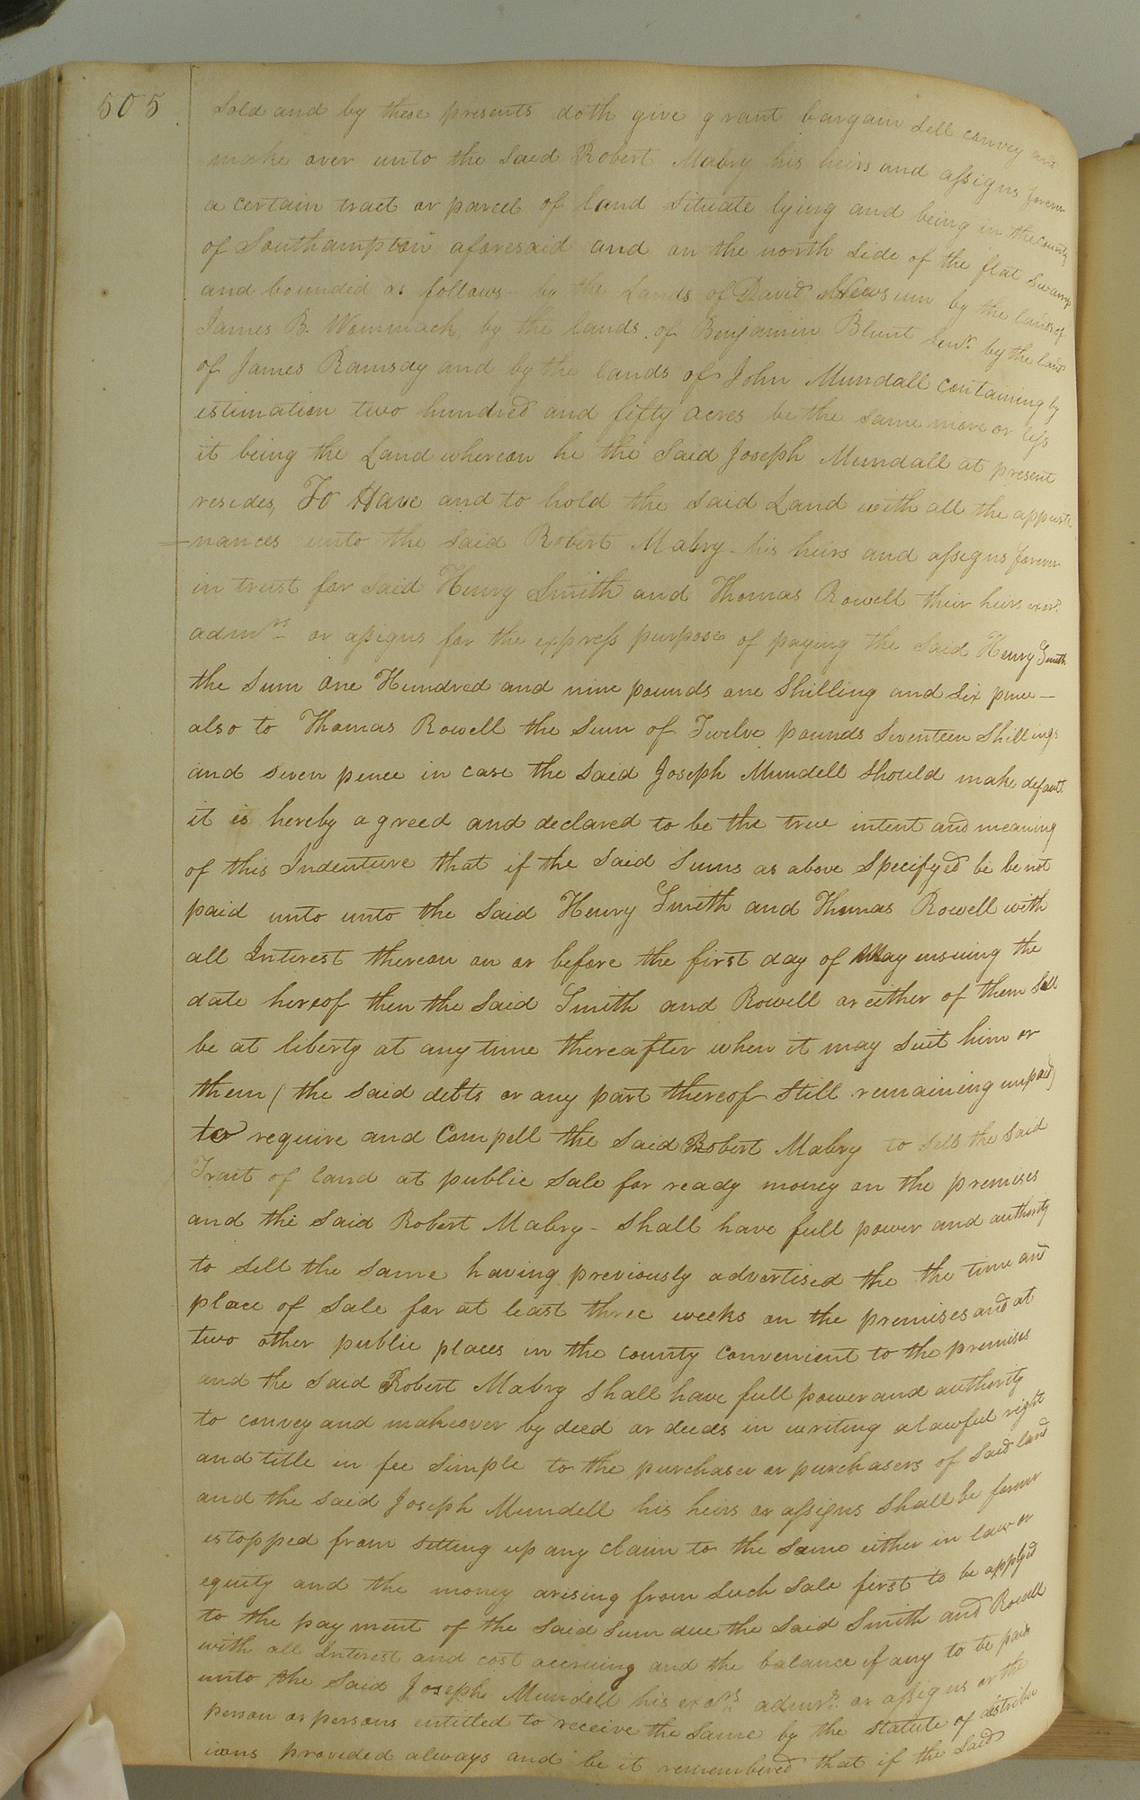 505
sold and by these presents doth give grant bargain sell convey and
make over unto the said Robert Mabry his heirs and assigns forever
a certain tract or parcel of land situate lying and being in the county
of Southampton aforesaid and on the north side of the flat swamp
and bounded as follows by the Lands of David Newsum by the lands of
James B. Wommack, by the lands of Benjamin Blunt Senr. by the land
of James Ramsay and by the lands of John Mundall containing by
estimation two hundred and fifty acres be the same more or less
it being the Land whereon he the said Joseph Mundall at present
resides, To Have and to hold the said Land with all the appurte
nances unto the said Robert Mabry - his heirs and assigns forever
in trust for said Henry Smith and Thomas Rowell their heirs exors.
admrs or assigns for the express purpose of paying the said Henry Smith
the sum one Hundred and nine pounds one Shilling and six pence —
also to Thomas Rowell the sum of Twelve pounds Seventeen Shillings
and seven pence in case the said Joseph Mundell should make default
it is hereby agreed and declared to be the true intent and meaning
of this Indenture that if the said sums as above specifyed be be not
paid unto unto the said Henry Smith and Thomas Rowell with
all Interest thereon on or before the first day of May ensuing the
date hereof then the said Smith and Rowell or either of them
be at liberty at any time thereafter when it may suit him or
them ( the said debts or any part thereof still remaining unpaid )
to require and Compell the said Robert Mabry to sell the said
Tract of land at public sale for ready money on the premises
and the said Robert Mabry - shall have full power and authority
to sell the same having previously advertised the the time and
place of sale for at least three weeks on the premises and at
two other public places in the county convenient to the premises
and the said Robert Mabry shall have full power and authority
to convey and makeover by deed or deeds in writing a lawful right
and title in fee simple to the purchaser or purchasers of said land
and the said Joseph Mundell his heirs or assigns shall be forever
estopped from setting up any claim to the same either in law or
equity and the money arising from such sale first to be applyed
to the payment of the said sum due the said Smith and Rowell
with all Interest and cost accruing and the balance if any to be paid
unto the said Joseph Mundell his exors. admrs. or assigns or the
person or persons entitled to receive the same by the statute of distribu
ions provided always and be it remembered that if the said